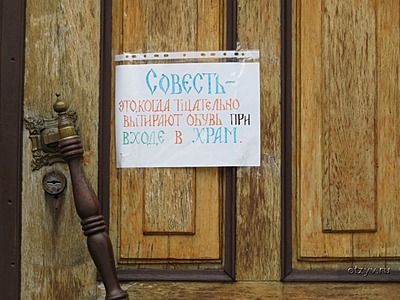 СОВЕСТЬ–
ЭТО, КОГДА ТЩАТЕЛЬНО
ВЫТИРАЮТ ОБУВЬ ПРИ
ВХОДЕ В ХРАМ.
otzyv.ru